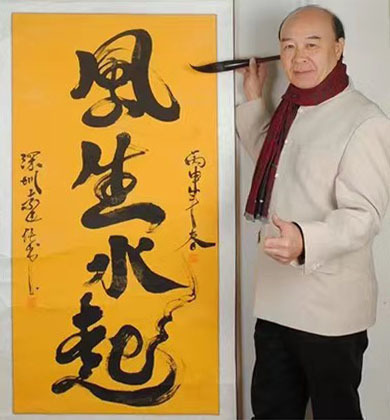 丙申年之春
風生水起
深圳